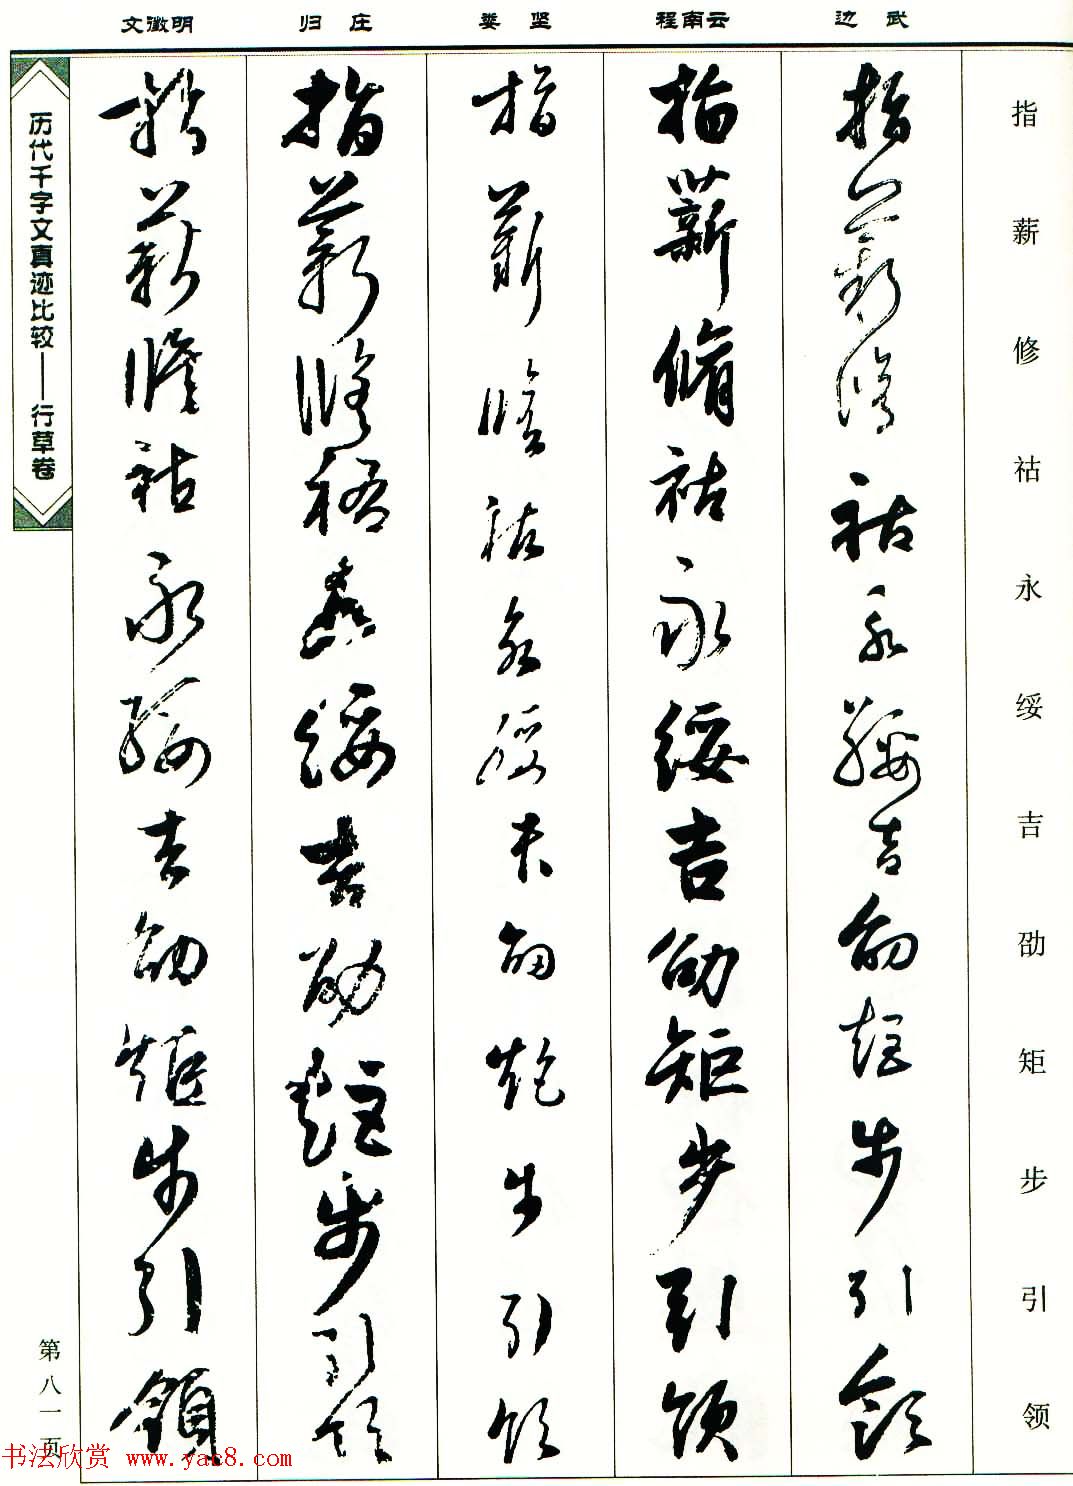 文徵明 归庄 娄坚 程南云 边武
指薪修祜永绥吉劭矩步引领
指薪脩祜永綏吉劭矩步引領
指薪脩祜永綏吉劭矩步引領
指薪脩祜永綏吉劭矩步引領
指薪脩祜永綏吉劭矩步引領
指薪脩祜永綏吉劭矩步引領
历代千字文真迹比较——行草卷
第八一页
书法欣赏 www.yac8.com